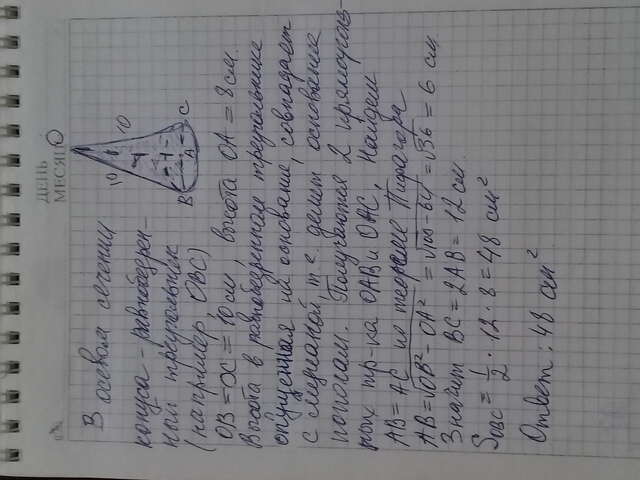 ДЕНЬ
МЕСЯЦ
O
В осевом сечении
10 10
конуса - равнобедрен-
ный треугольник
B A C
(например, OBC)
OB = OC = 10 см, высота OA = 8 см.
Высота в равнобедренном треугольнике
опущенная на основание, совпадает
с медианой, т.е. делит основание
пополам. Получаются 2 прямоуголь-
ных тр-ка OAB и OAC, Найдем
AB = AC по теореме Пифагора
AB = √OB² - OA² = √100-64 = √36 = 6 см
Значит BC = 2AB = 12 см.
S_OBC = 1/2 · 12 · 8 = 48 см²
Ответ: 48 см²